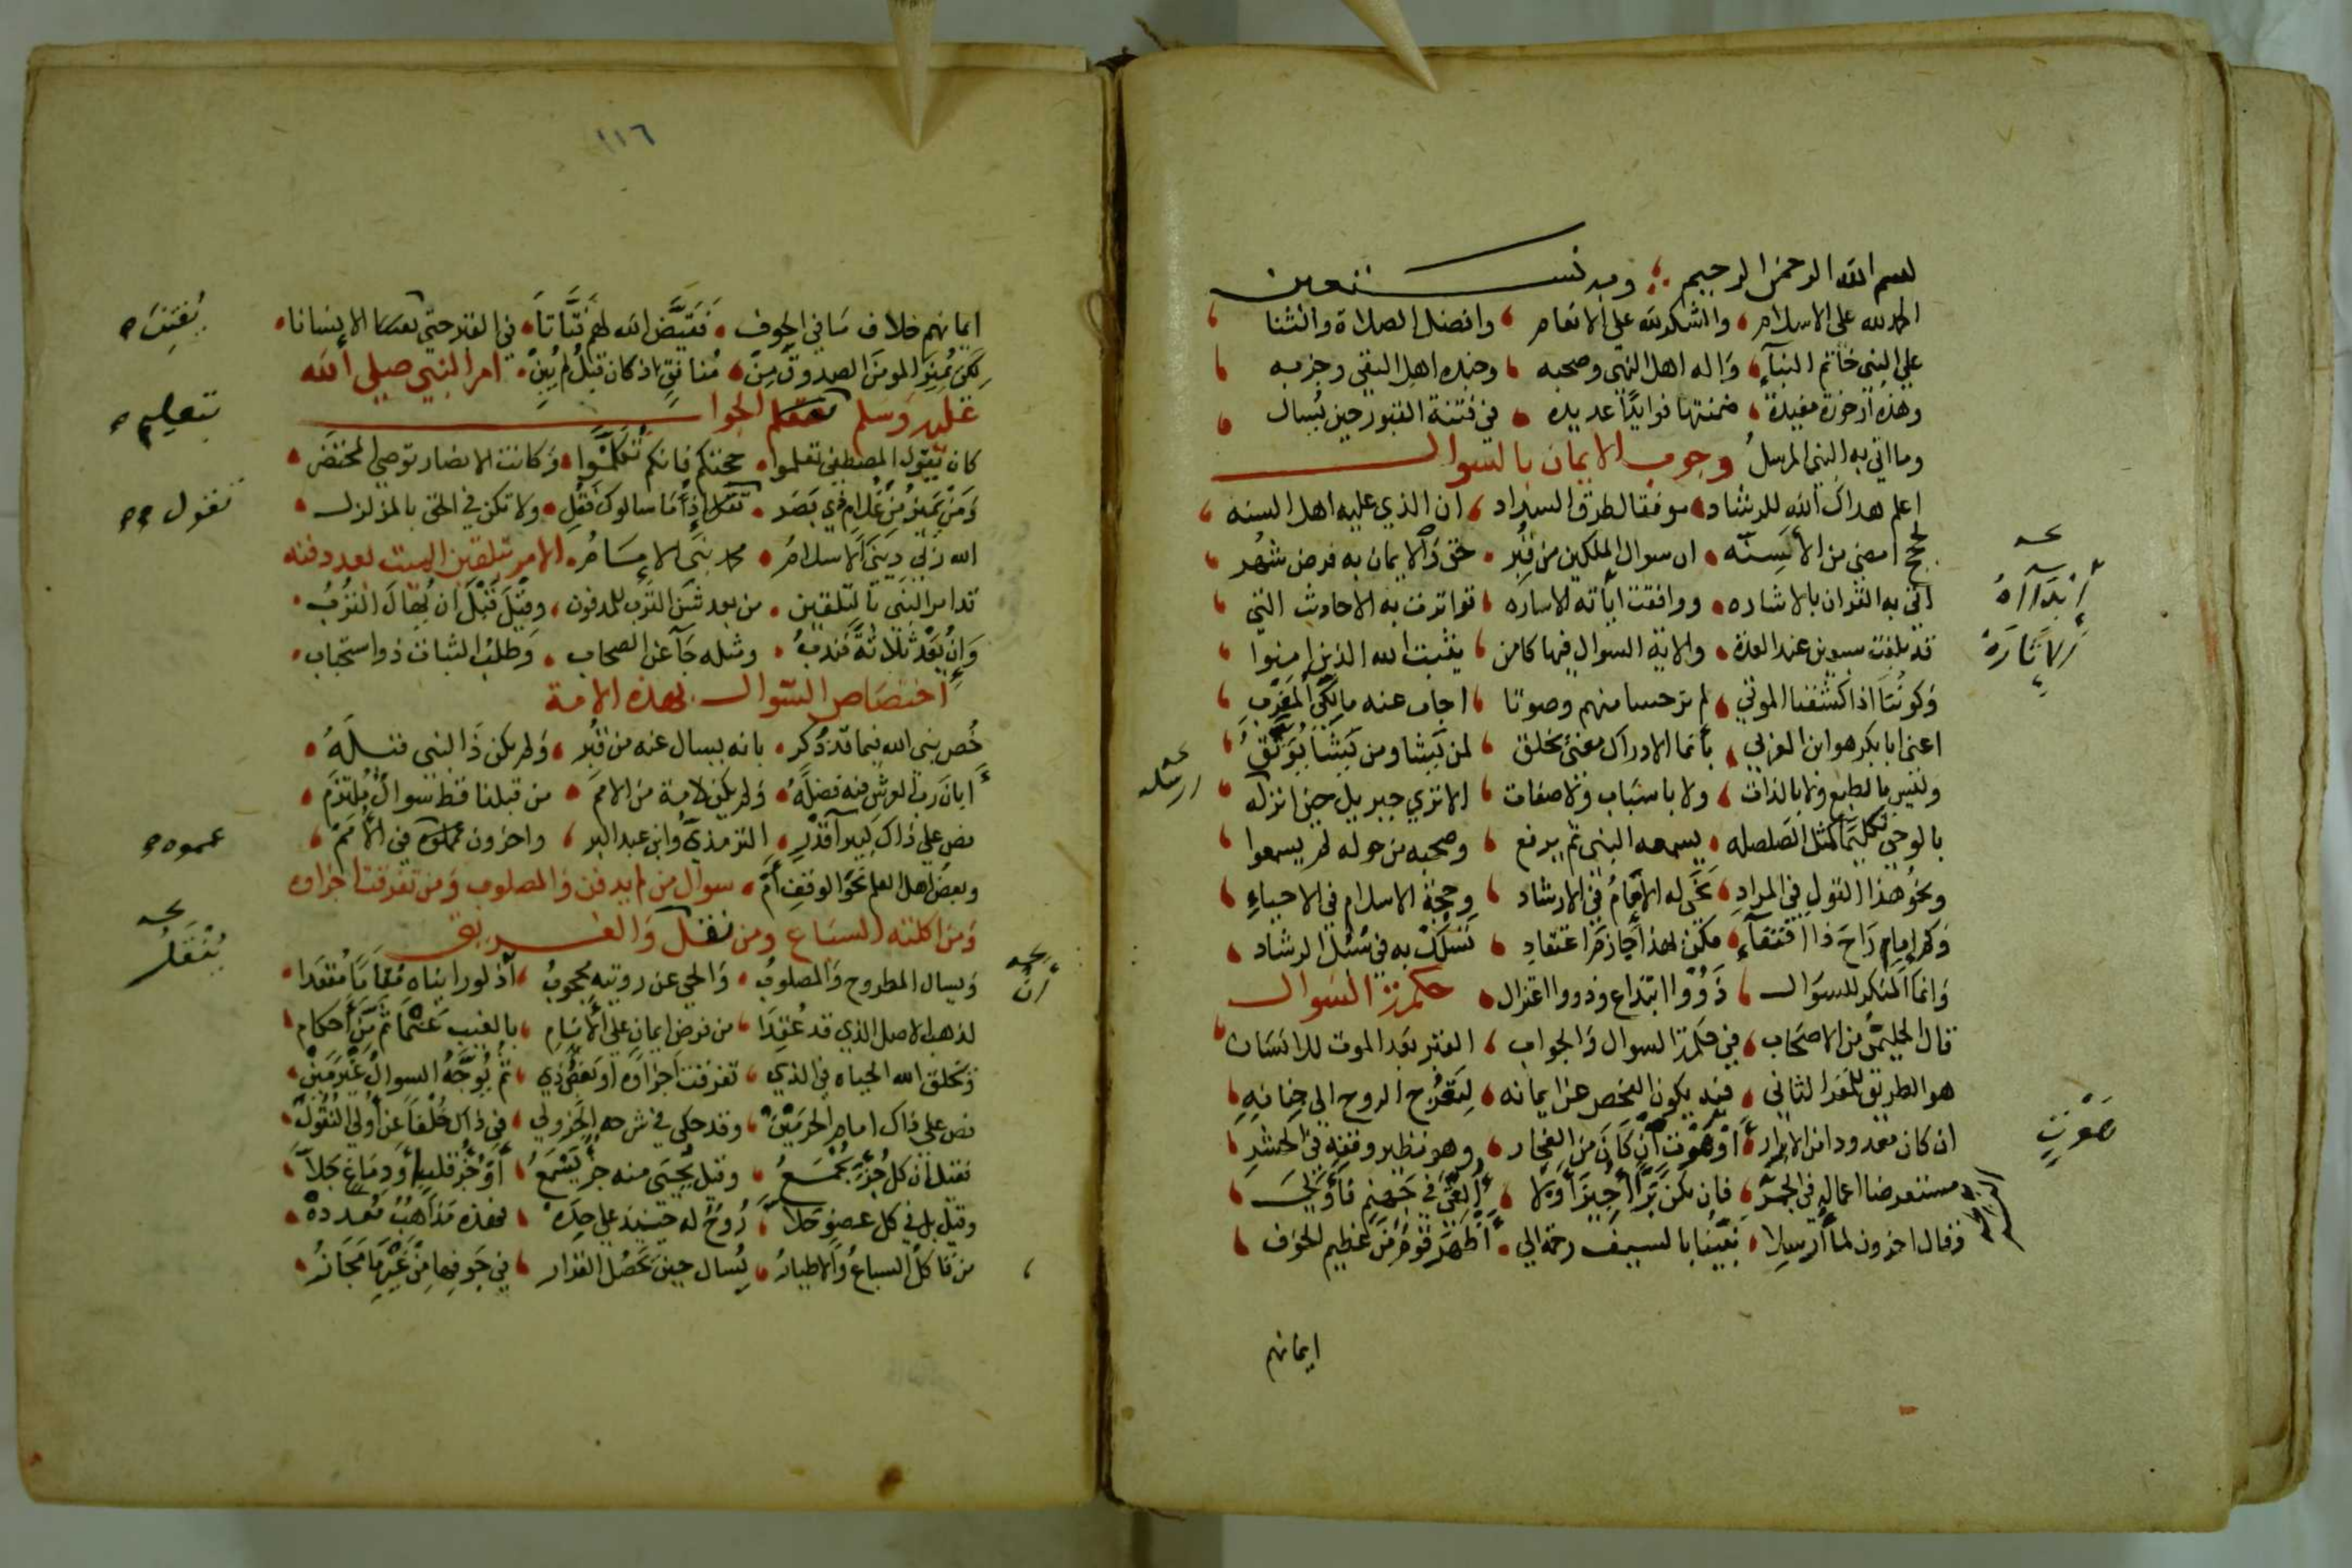 بسم الله الرحمن الرحيم وبه نستعين
الحمد لله على الاسلام والشكر لله على الانعام وافضل الصلاة والثنا
على النبي خاتم النباء واله اهل النهى وصحبه وجنده اهل التقى وحزبه
وهذه ارجوزة مفيدة ضمنتها فوايدا عديده في فتنة القبور حين يسال
وما اتى به النبي المرسل وجوب الايمان بالسوال
اعلم هداك الله للرشاد موفقا لطرق السداد ان الذي عليه اهل السنه
لحج امضى من الأسنه ان سوال الملكين من قبر حق والايمان به فرض شهر
اتى به القران بالاشاره ووافقت اياته الاساره تواترت به الاحاديث التي
قد بلغت سبعين عند العدة والاية السوال فيها كامن يثبت الله الذين امنوا
وكوننا اذا كشفنا الموتى لم نر حسا منهم وصوتا اجاب عنه مالكي المغرب
اعنى ابا بكر هو ابن العربي بانما الادراك معنى يخلق لمن يشا ومن يشا يوفق
وليس بالطبع ولا بالذات ولا باسباب ولا صفات الا ترى جبريل حين انزله
بالوحي تكليما كمثل الصلصله يسمعه النبي ثم يرفع وصحبه من حوله لم يسمعوا
ونحو هذا القول في المراد نحى له الامام في الارشاد وحجة الاسلام في الاحياء
وكم إمام راح ذا اقتفاء فكن لهذا جازم اعتقاد تسلك به في سبل الرشاد
وانما المنكر للسوال ذوو ابتداع وذوو اعتزال حكمة السوال
قال الحليمي من الاصحاب في حكمة السوال والجواب القبر بعد الموت للانسان
هو الطريق للمقر الثاني فيه يكون الفحص عن ايمانه ليعرج الروح الى جنانه
ان كان معدودا من الابرار او هوت ان كان من الفجار وهو نظير وقفه في الحشر
مستعرضا اعماله في الجسر فان يكن برا اجيز أو لا ألقي في جهنم
وقال اخرون لما أرسلا نبينا بالسيف رحمة الى أظهر قوم من عظيم الخوف
ايمانهم
أنبآاه
الاثاره
ارسله
هوت
١١٦
ايمانهم خلاف ما في الجوف فقيض الله لهم فتانا في القبر حتى الانسانا
لكي تميز المومن الصدوق من منافق اذ كان قبل لم يبن امر النبي صلى الله
عليه وسلم الجواب
كان يقول المصطفى تعلموا حجتكم فانكم تكلموا وكانت الانصار توصي المحتضر
ومن تميز من غلام في بصر اذا ما سالوك فقل ولا تكن في الحق بالمزلزل
الله ربي ديني الاسلام محمد نبي الامام الامر بتلقين الميت بعد دفنه
قد امر النبي بالتلقين من بعد شن الترب للمدفون وقيل قبل ان يهال الترب
وان يعد ثلاثة فندب ومثله جا عن الصحاب وطلب الثبات ذو استحباب
اختصاص السوال بهذه الامة
خص نبي الله فيما قد ذكر بانه يسال عنه من قبر ولم يكن ذا لنبي قبله
ابان رب العرش فيه فضله ولم يكن لامة من الامم من قبلنا قط سوال ملتزم
نص على ذاك الترمذي وابن عبد البر واخرون في الأمم
وبعض اهل العلم نحو الوقف أم سوال من لم يدفن والمصلوب ومن تفرقت اجزاوه
ومن اكلته السباع ومن نقل والغريق
ويسال المطروح والمصلوب والحي عن رويته محجوب
لذهب الاصل الذي قد عقدا من فرض ايمان على الأنام بالغيب
ويخلق الله الحياه في الذي تفرقت اجزاوه او بعض ذي ثم يوجه السوال
نص على ذاك امام الحرمين وقد حكى في شرحه الجزولي في ذاك خلفا عن أولي النقول
فقيل ان كل جزء يجمع وقيل يحيى منه جز يسمع أو جز قلبه أو دماغ جلا
وقيل بل في كل عضو حلا روح له حينيذ على حده فهذه مذاهب معدده
من السباع والاطيار يسال حين يحصل القرار في جوفها من غير ما مجاز
يفتن
بتعليم
تقول
عموه
ينقل
أن